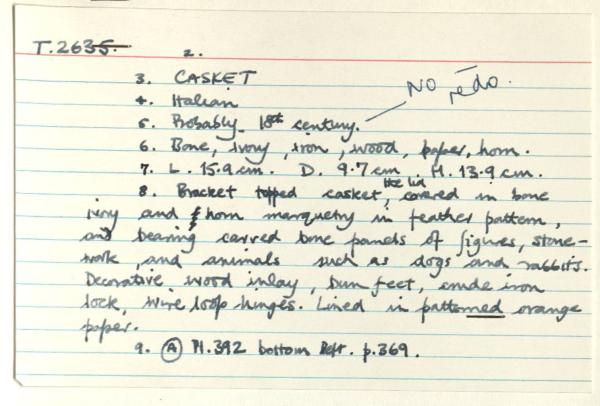 T.2635. 2.
3. CASKET
4. Italian
5. Probably 18th century. NO redo.
6. Bone, ivory, iron, wood, paper, horn.
7. L. 15.9 cm. D. 9.7 cm. H. 13.9 cm.
8. Bracket topped casket, the lid covered in bone
ivory and horn marquetry in feather pattern,
and bearing carved bone panels of figures, stone-
work, and animals such as dogs and rabbits.
Decorative wood inlay, bun feet, crude iron
lock, wire loop hinges. Lined in patterned orange
paper.
9. (A) Pl. 392 bottom left. p. 369.